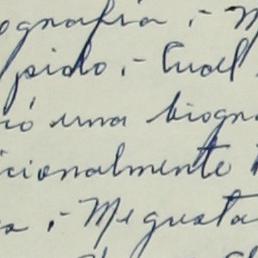 ografía ,- M
pido ,- Cual
ió una biogr
icionalmente
a ,- Me gusta